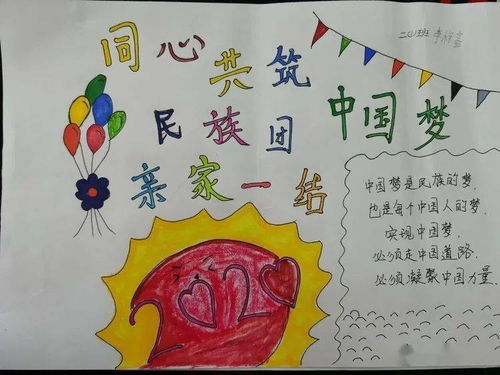 同心共筑
中国梦
民族团
亲家一结
中国梦是民族的梦,
也是每个中国人的梦.
实现中国梦
必须走中国道路.
必须凝聚中国力量.
2020